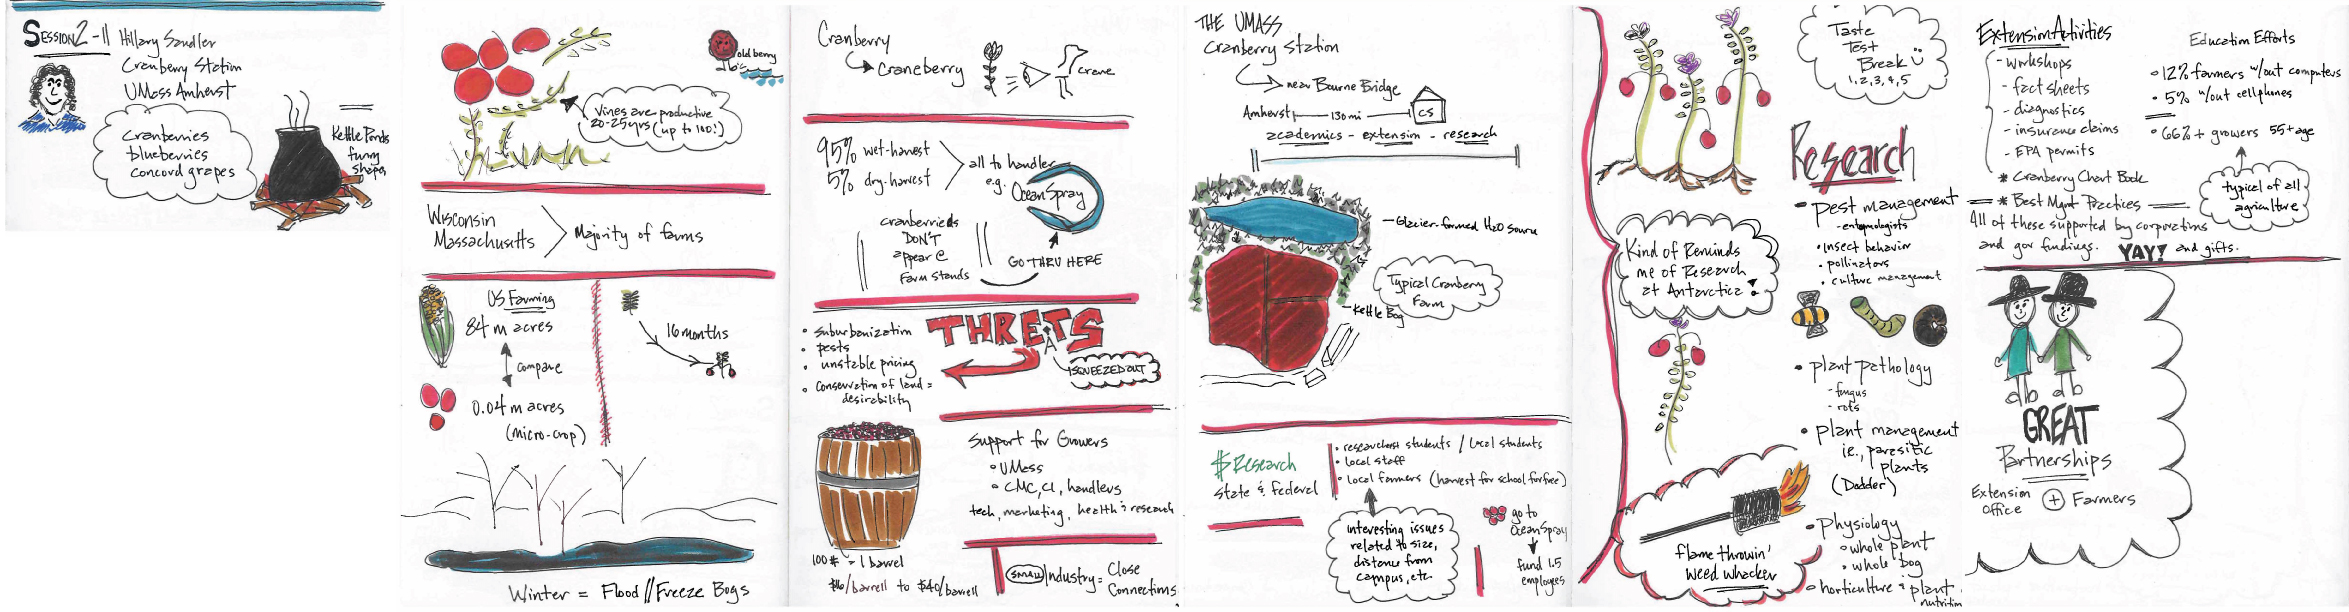 SESSION 2-11 Hillary Sandler
Cranberry Station
UMass Amherst
Cranberries
blueberries
concord grapes
Kettle Ponds
funny
shapes
old berry
Vines are productive
20-25yrs (up to 100!)
Wisconsin
Massachusetts
Majority of farms
US Farming
84 m acres
compare
0.04 m acres
(micro-crop)
16 months
Winter = Flood // Freeze Bogs
Cranberry
Craneberry
crane
95% wet-harvest
5% dry-harvest
all to handler
e.g. OceanSpray
cranberrieds
DON'T
appear @
Farm stands
GO THRU HERE
THRETS
A
SQUEEZED OUT
• suburbanization
• pests
• unstable pricing
• conservation of land =
desirability
100# = 1 barrel
$16/barrell to $40/barrell
Support for Growers
• UMass
• CMC, CI, handlers
tech, marketing, health & research
SMALL Industry = Close
Connections
THE UMASS
Cranberry Station
near Bourne Bridge
Amherst 130 mi CS
academics - extension - research
Glacier-formed H2O source
Typical Cranberry
Farm
Kettle Bog
$ Research
State & Federal
• researchers students / Local students
• local staff
• local farmers (harvest for school for free)
interesting issues
related to size,
distance from
campus, etc.
go to
OceanSpray
fund 1.5
employees
Taste
Test
Break
1,2,3,4,5
Kind of Reminds
me of Research
at Antarctica!
flame throwin'
weed whacker
Research
- pest management
- entomologists
• insect behavior
• pollinators
• culture management
• plant pathology
- fungus
- rots
• plant management
ie., parasitic
plants
(Dodder)
• physiology
• whole plant
• whole bog
• horticulture & plant
nutrition
Extension Activities
- workshops
- fact sheets
- diagnostics
- insurance claims
- EPA permits
* Cranberry Chart Book
* Best Mgmt Practices
All of these supported by corporations
and gov fundings. YAY! and gifts.
Education Efforts
• 12% farmers w/out computers
• 5% w/out cellphones
• 66%+ growers 55+ age
typical of all
agriculture
GREAT
Partnerships
Extension
Office + Farmers